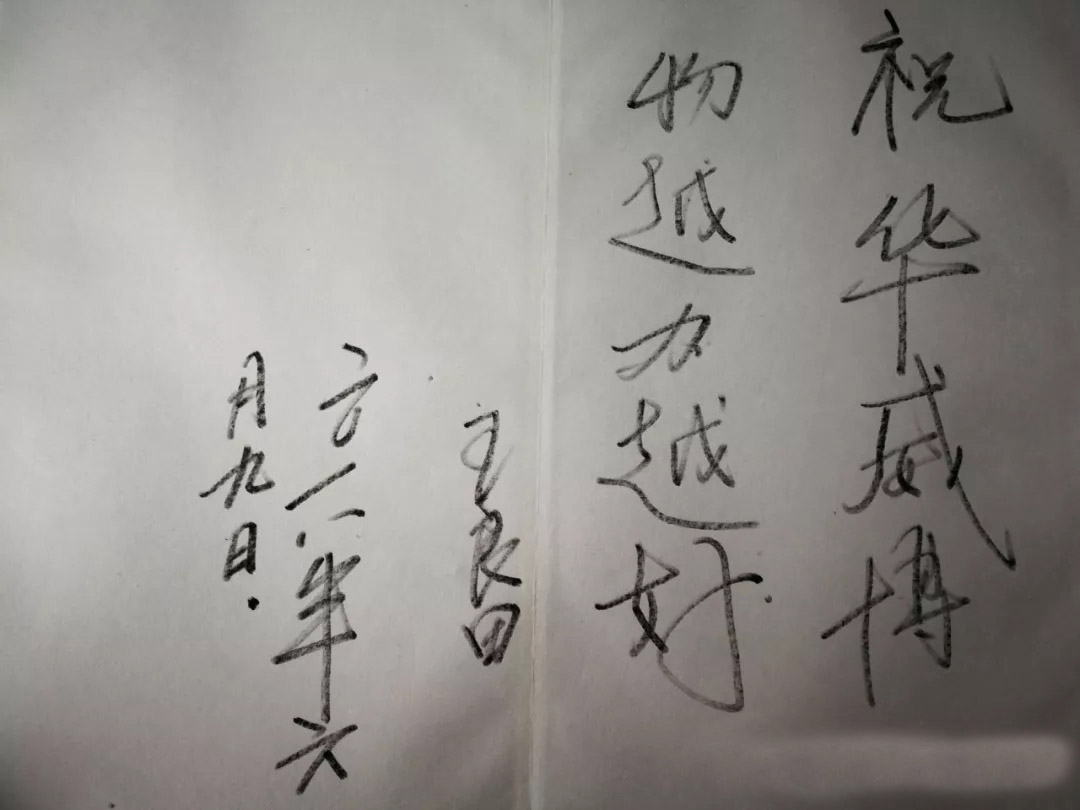 祝华威博
物越办越好.
王良田
二〇一八年六
月九日.